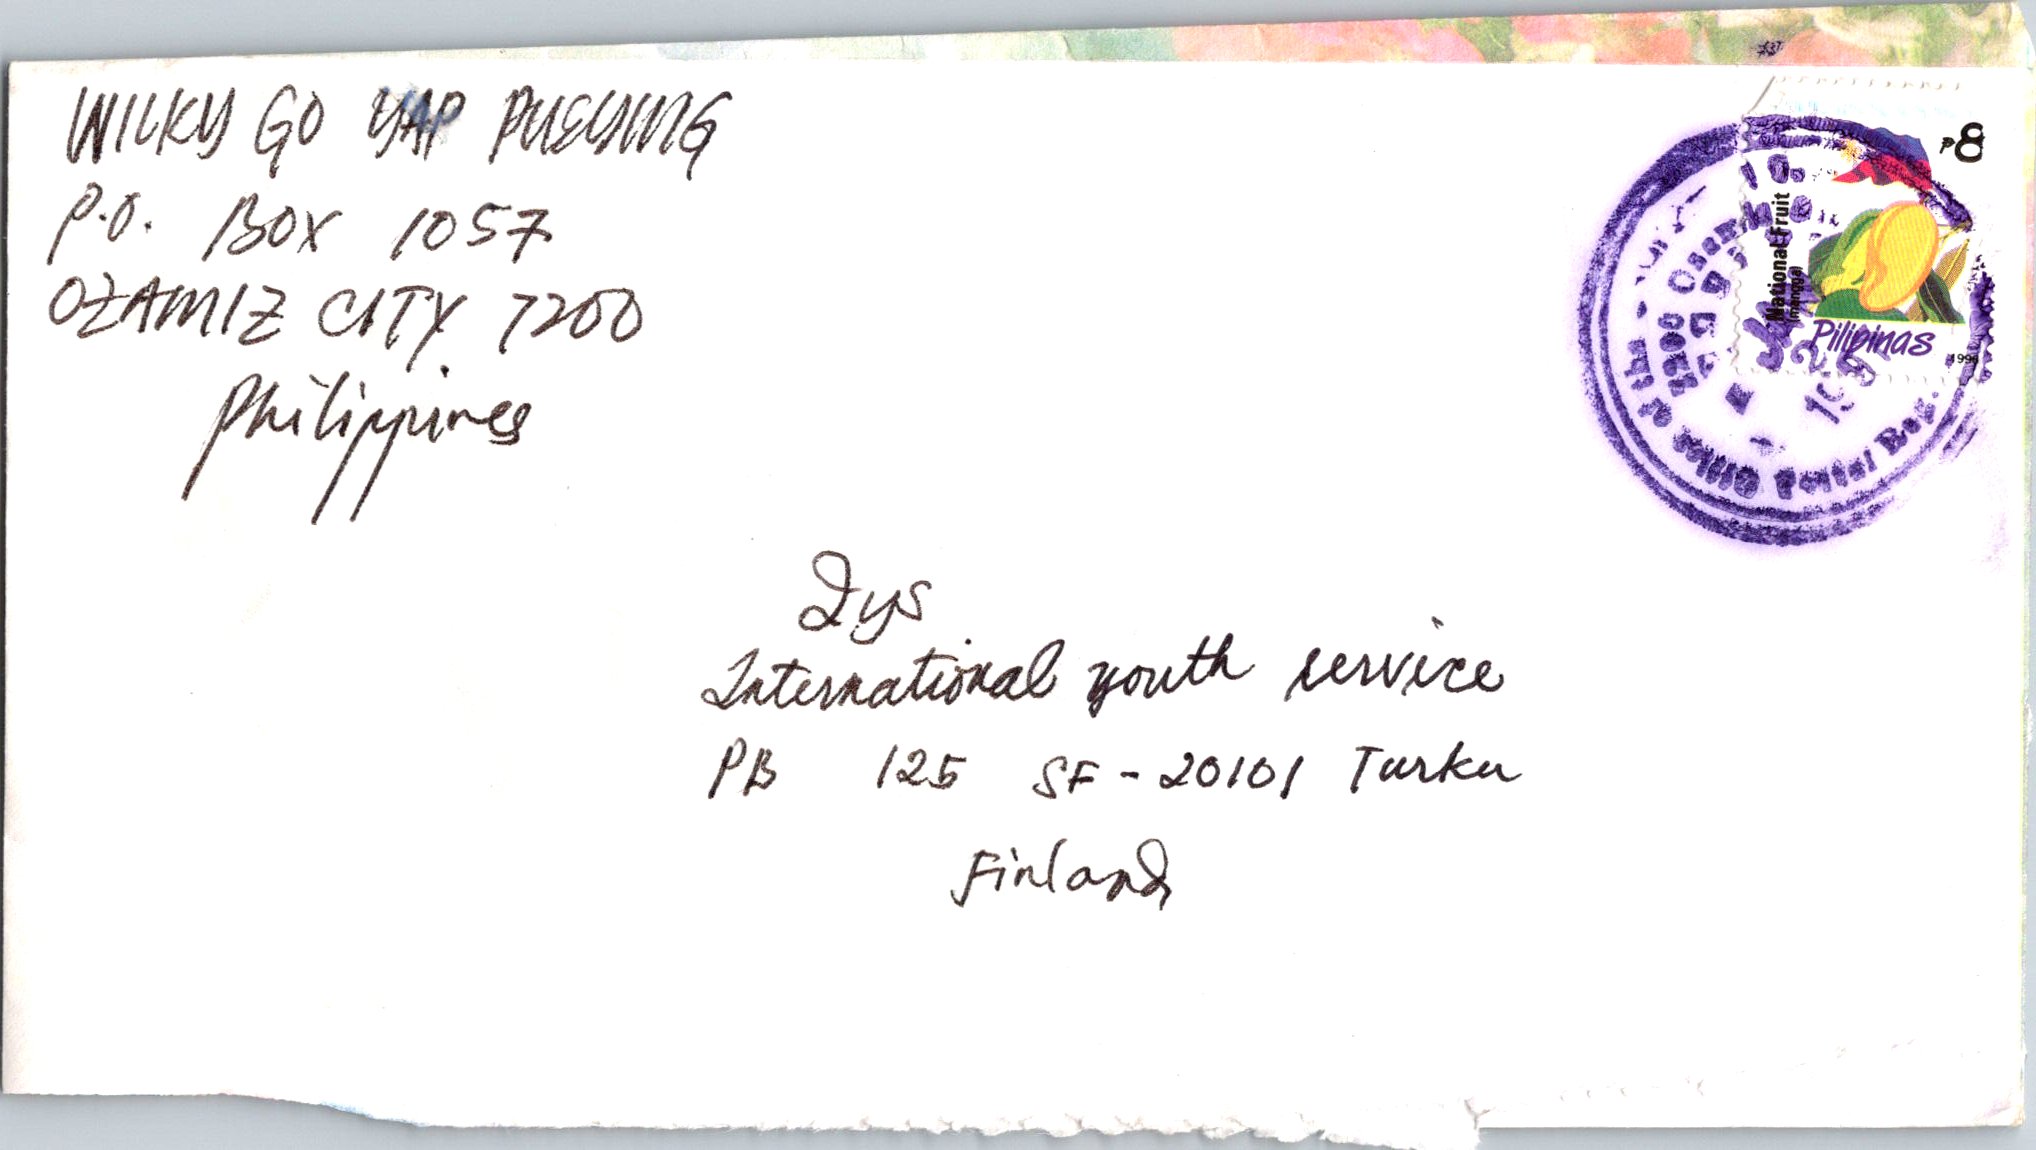 WILKY GO YAP PUEYING
P.O. BOX 1057
OZAMIZ CITY 7200
Philippines
P8
National Fruit
(mangga)
Pilipinas
1996
7200 Ozamiz
of the
Office Postal Reg.
Iys
International youth service
PB 125 SF-20101 Turku
Finland